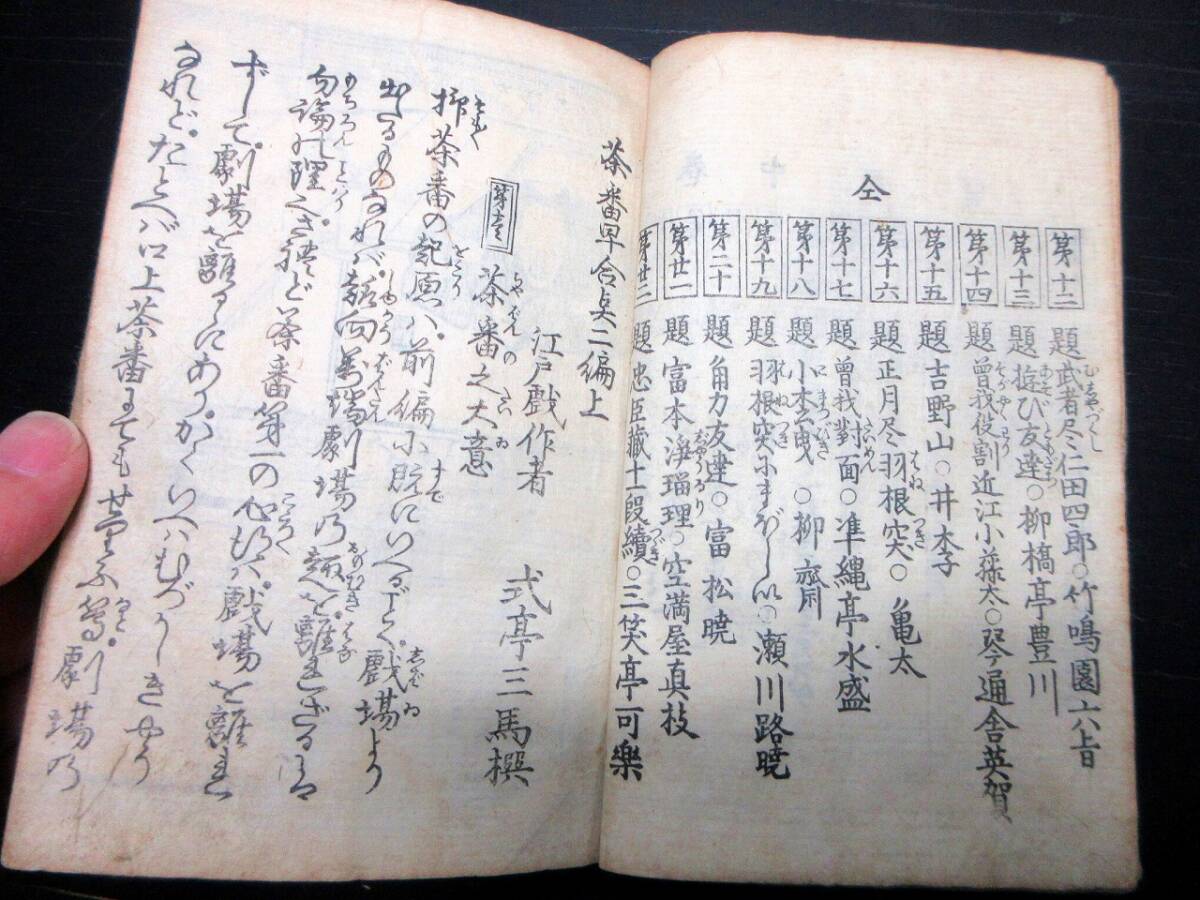 仝
第十二 題武者尽仁田四郎○竹鳴園六上旨
第十三 題遊び友達○柳橋亭豊川
第十四 題曽我役割近江小藤太○琴通舎英賀
第十五 題吉野山○井木子
第十六 題正月尽羽根突○亀太
第十七 題曽我対面○準縄亭水盛
第十八 題小松曳○柳齋
第十九 題羽根突小まぼしい○瀬川路暁
第二十 題角力友達○富松暁
第廿一 題富本浄瑠理○空満屋真枝
第廿二 題忠臣蔵十一段續○三笑亭可樂
茶番早合点二編上
江戸戯作者 式亭三馬撰
第壱 茶番之大意
抑茶番の起原ハ前編小既にいへるごとく戯場より
出たるものなれバ趣向万端劇場乃趣を離れざるハ
勿論の理なりされど茶番第一の心得ハ戯場を離れ
ずして劇場を離るゝにありかくいへハむづかしきやう
なれどたとへバ口上茶番にてもせりふ等劇場乃